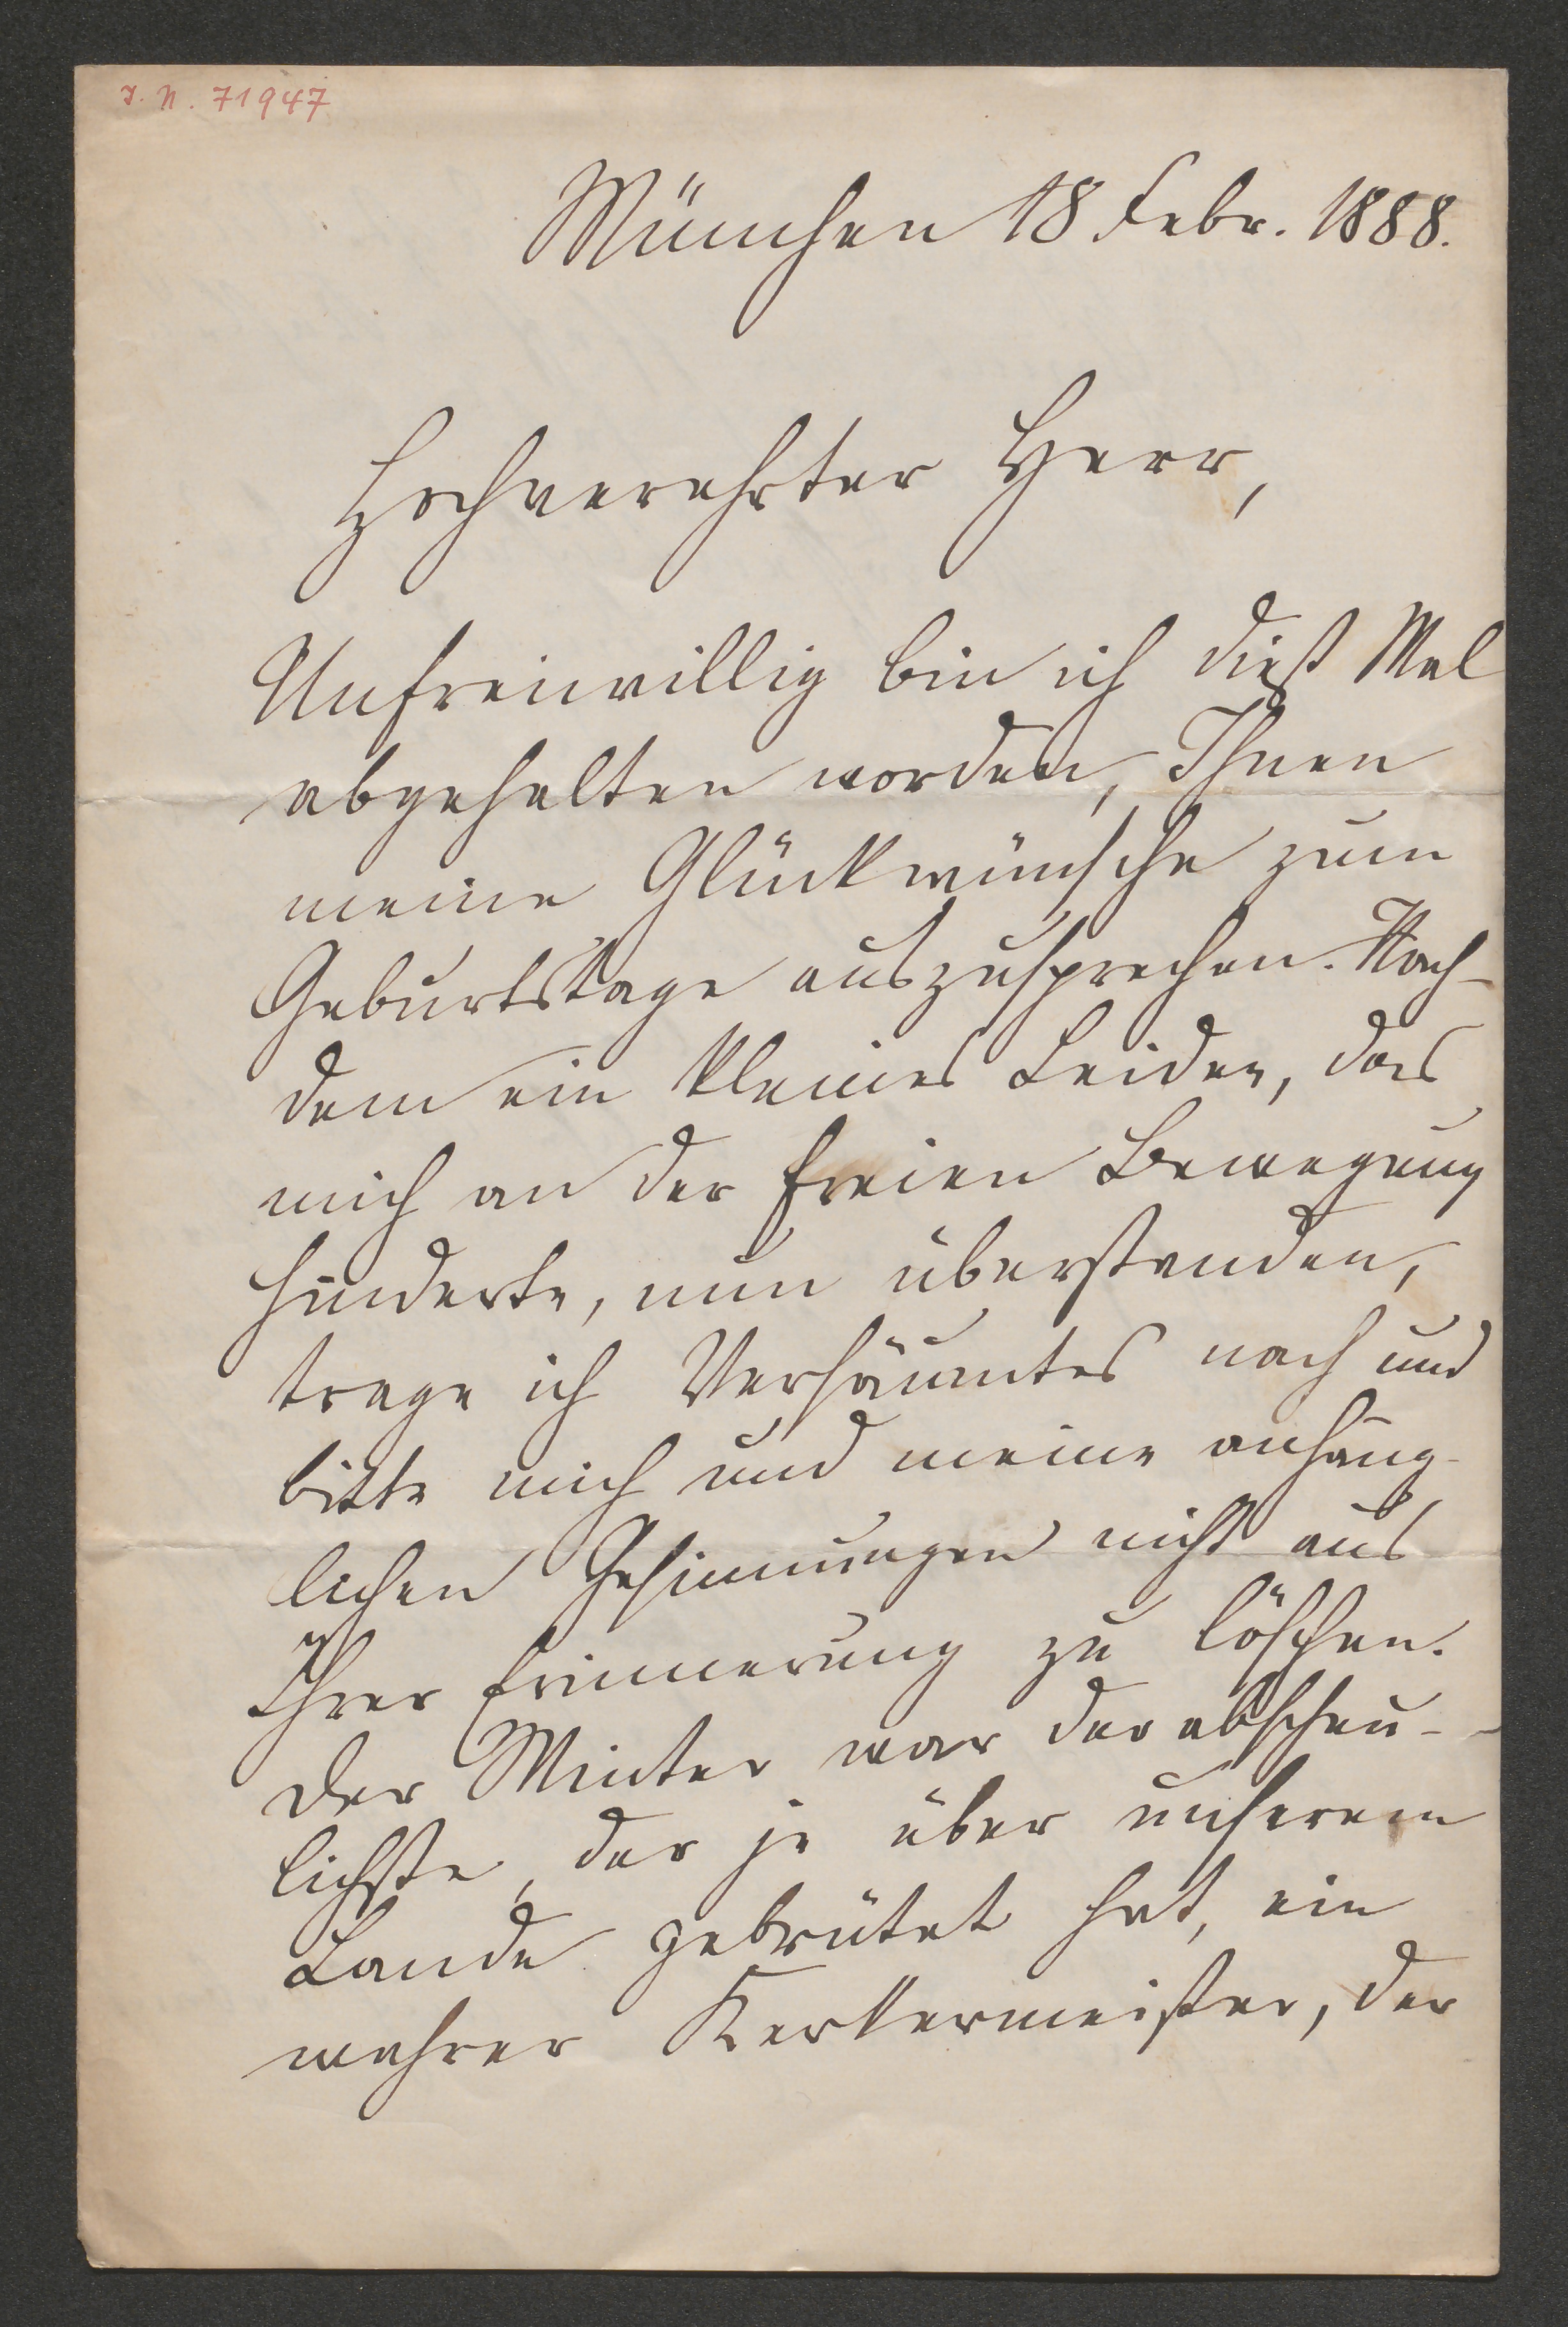 I. N. 71947
München 18 Febr. 1888.
Hochverehrter Herr,
Unfreiwillig bin ich dieß Mal
abgehalten worden, Ihnen
meine Glückwünsche zum
Geburtstage auszusprechen. Nach-
dem ein kleines Leiden, das
mich an der freien Bewegung
hinderte, nun überstanden,
trage ich Versäumtes nach und
bitte mich und meine anhäng-
lichen Gesinnungen nicht aus
Ihrer Erinnerung zu löschen.
Der Winter war der abscheu-
lichste, der je über unserem
Lande gebrütet hat, ein
wahrer Kerkermeister, der